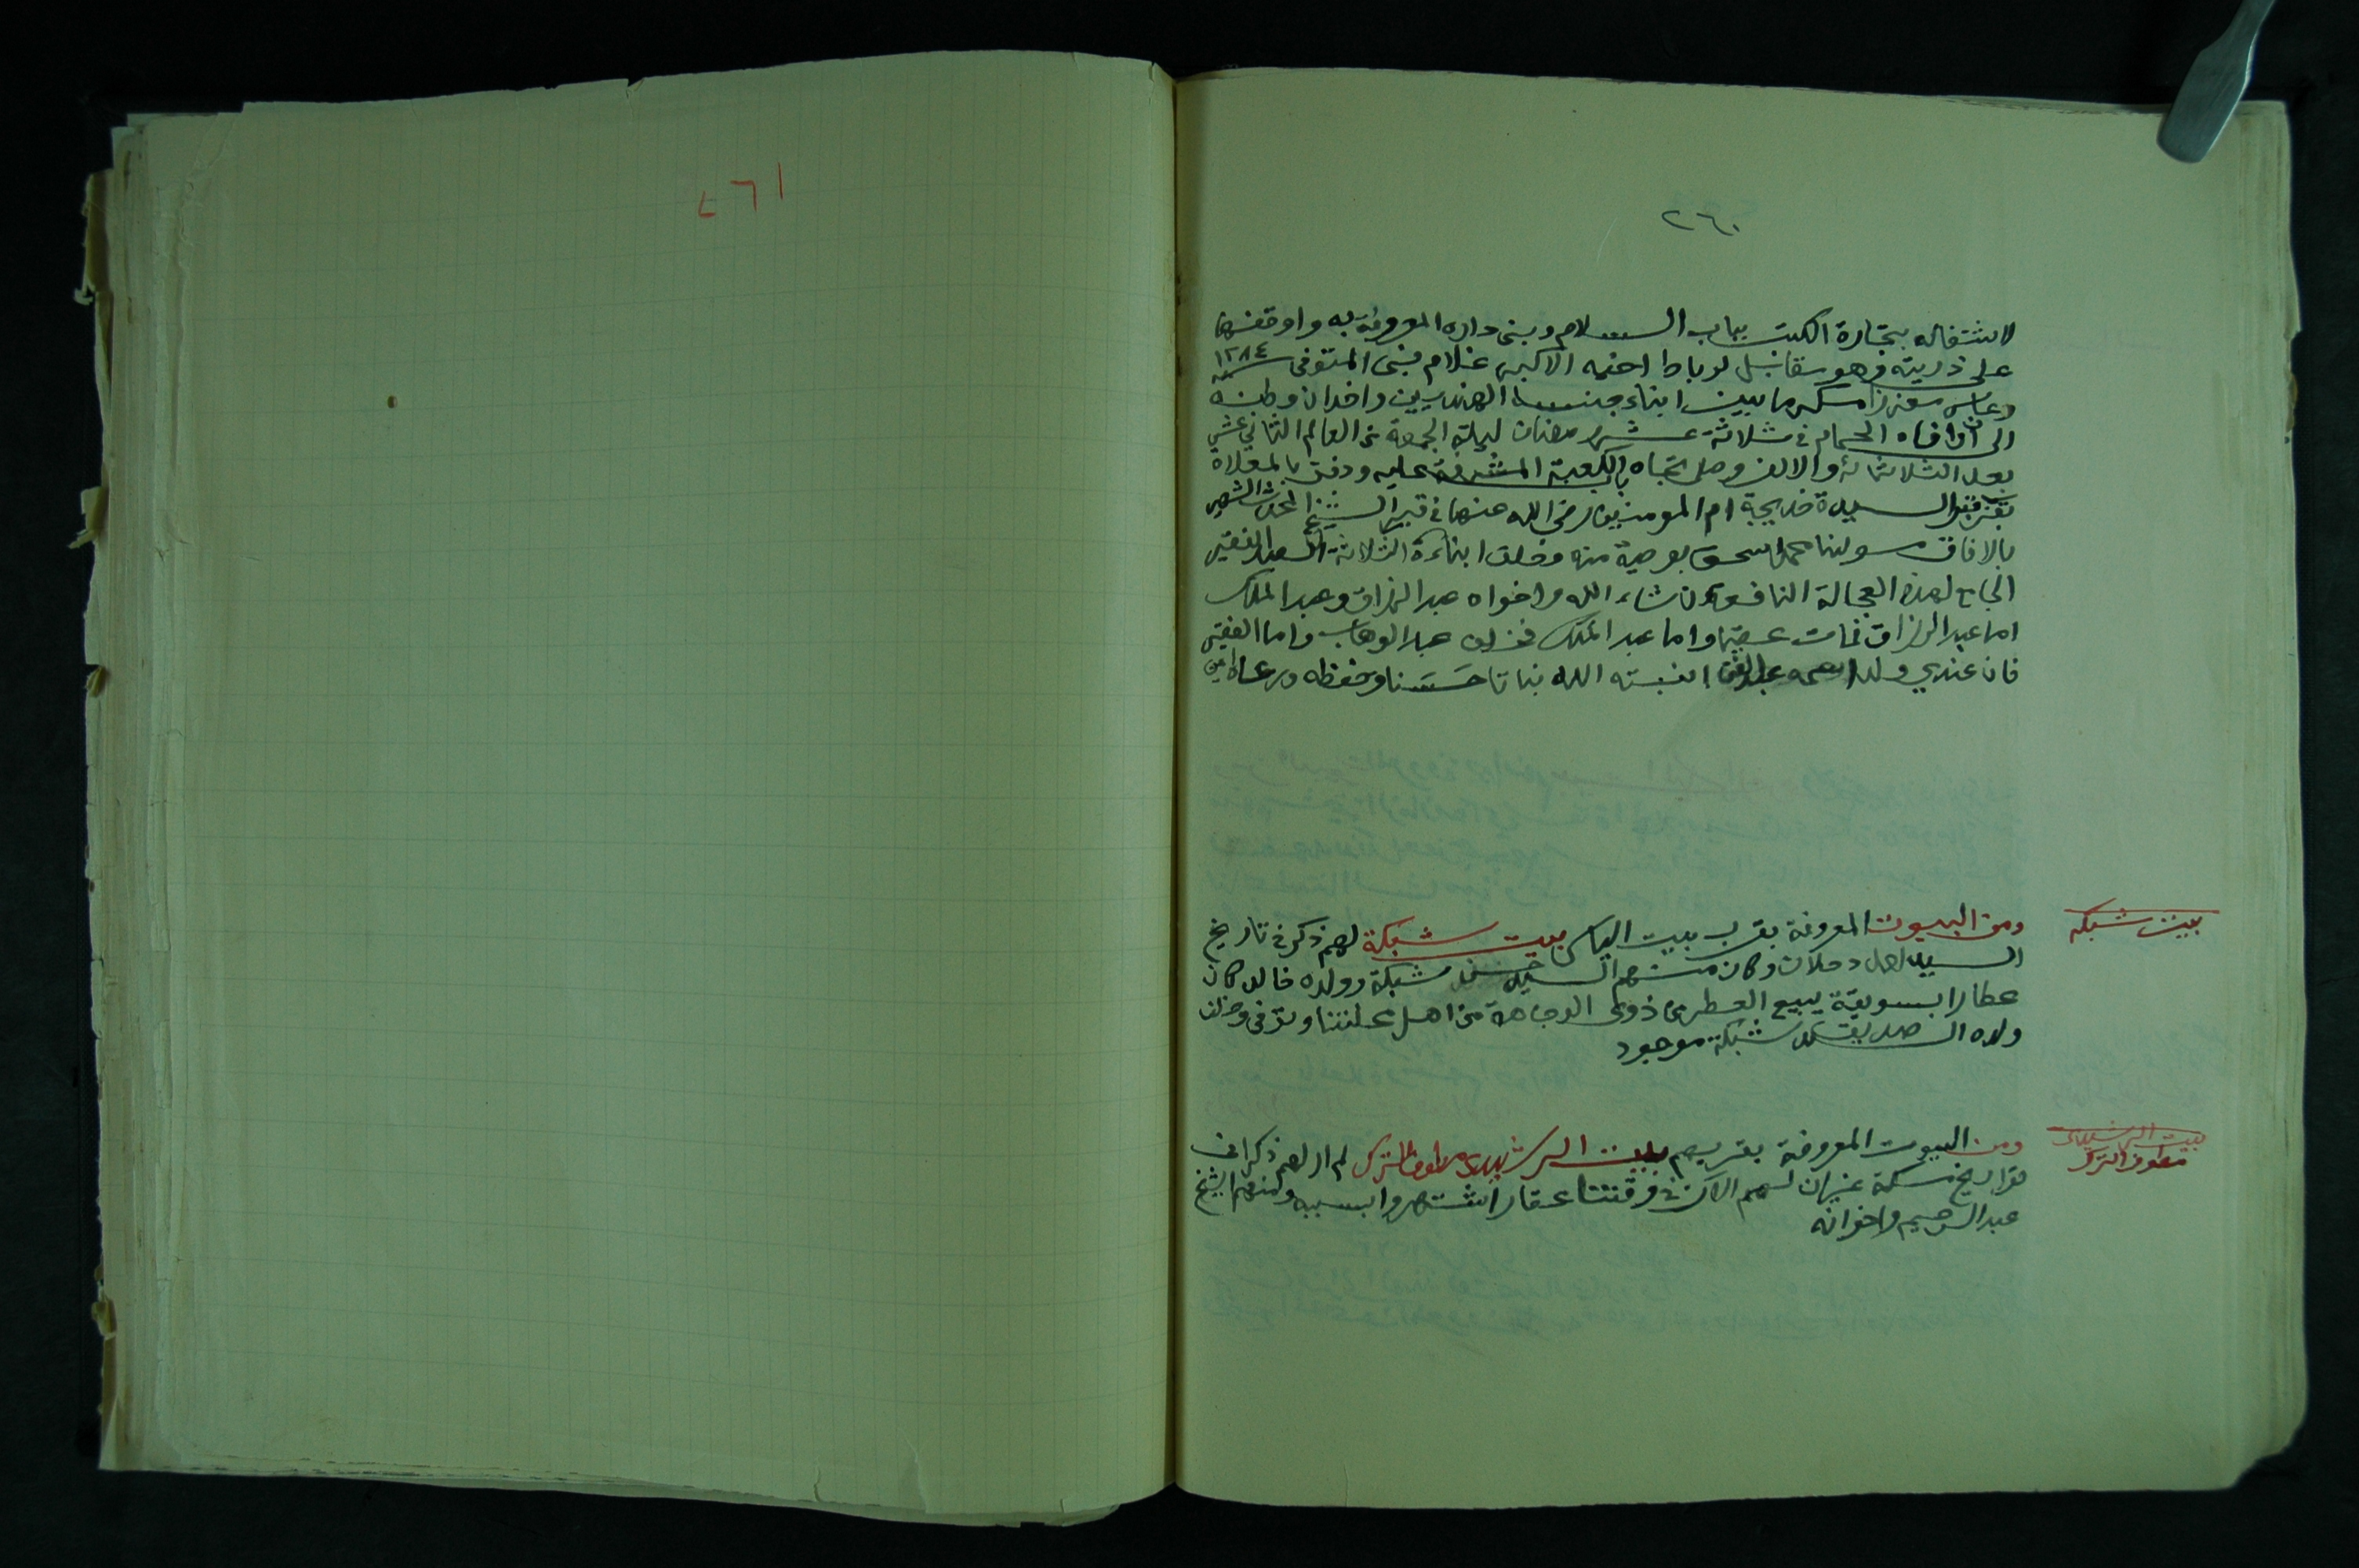 ٢٦٠
لاشتغاله بتجارة الكتب بباب السلام وبنى داره المعروفة به واوقفها
على ذريته وهو مقابل لرباط اخيه الاكبر غلام نبى المتوفى سنة ١٢٨٤
وعاش معززا مكرما بين ابناء جنسه الهنديين واخدان وطنه
الى ان وافاه الحمام في ثلاثة عشر رمضان ليلة الجمعة من العام الثاني عشر
بعد الثلاثمائة والالف وصلى تجاه باب الكعبة المشرفة عليه ودفن بالمعلاة
بقرب قبر السيدة خديجة ام المومنين رضي الله عنها في قبر الشيخ المحدث الشهير
بالافاق مولينا محمد اسحق بوصية منه وخلف ابناءه الثلاثة العبد الفقير
الجامع لهذه العجالة النافعة ان شاء الله واخواه عبد الرزاق وعبد الملك
اما عبد الرزاق فمات عقيما واما عبد الملك فخلف عبد الوهاب واما الفقير
فان عندي ولد اسمه انبته الله نباتا حسنا وحفظه ورعاه امين
بيت شبكه
ومن البيوت المعروفة بقرب بيت الياس بيت شبكة لهم ذكر في تاريخ
السيد احمد دحلان وكان منهم السيد شبكة وولده خالد كان
عطارا بسويقة يبيع العطر من ذوى الوجاهة من اهل محلتنا وتوفى وخلف
ولده الصديق شبكة موجود
بيت الرشيدى
مطوف الترك
ومن البيوت المعروفة بقربهم بيت الرشيدى مطوف الترك لم ار لهم ذكرا في
تواريخ مكة غير ان لهم الان في وقتنا عقارا اشتهروا بسببه ومنهم الشيخ
عبد الرحيم واخوانه
٢٦١